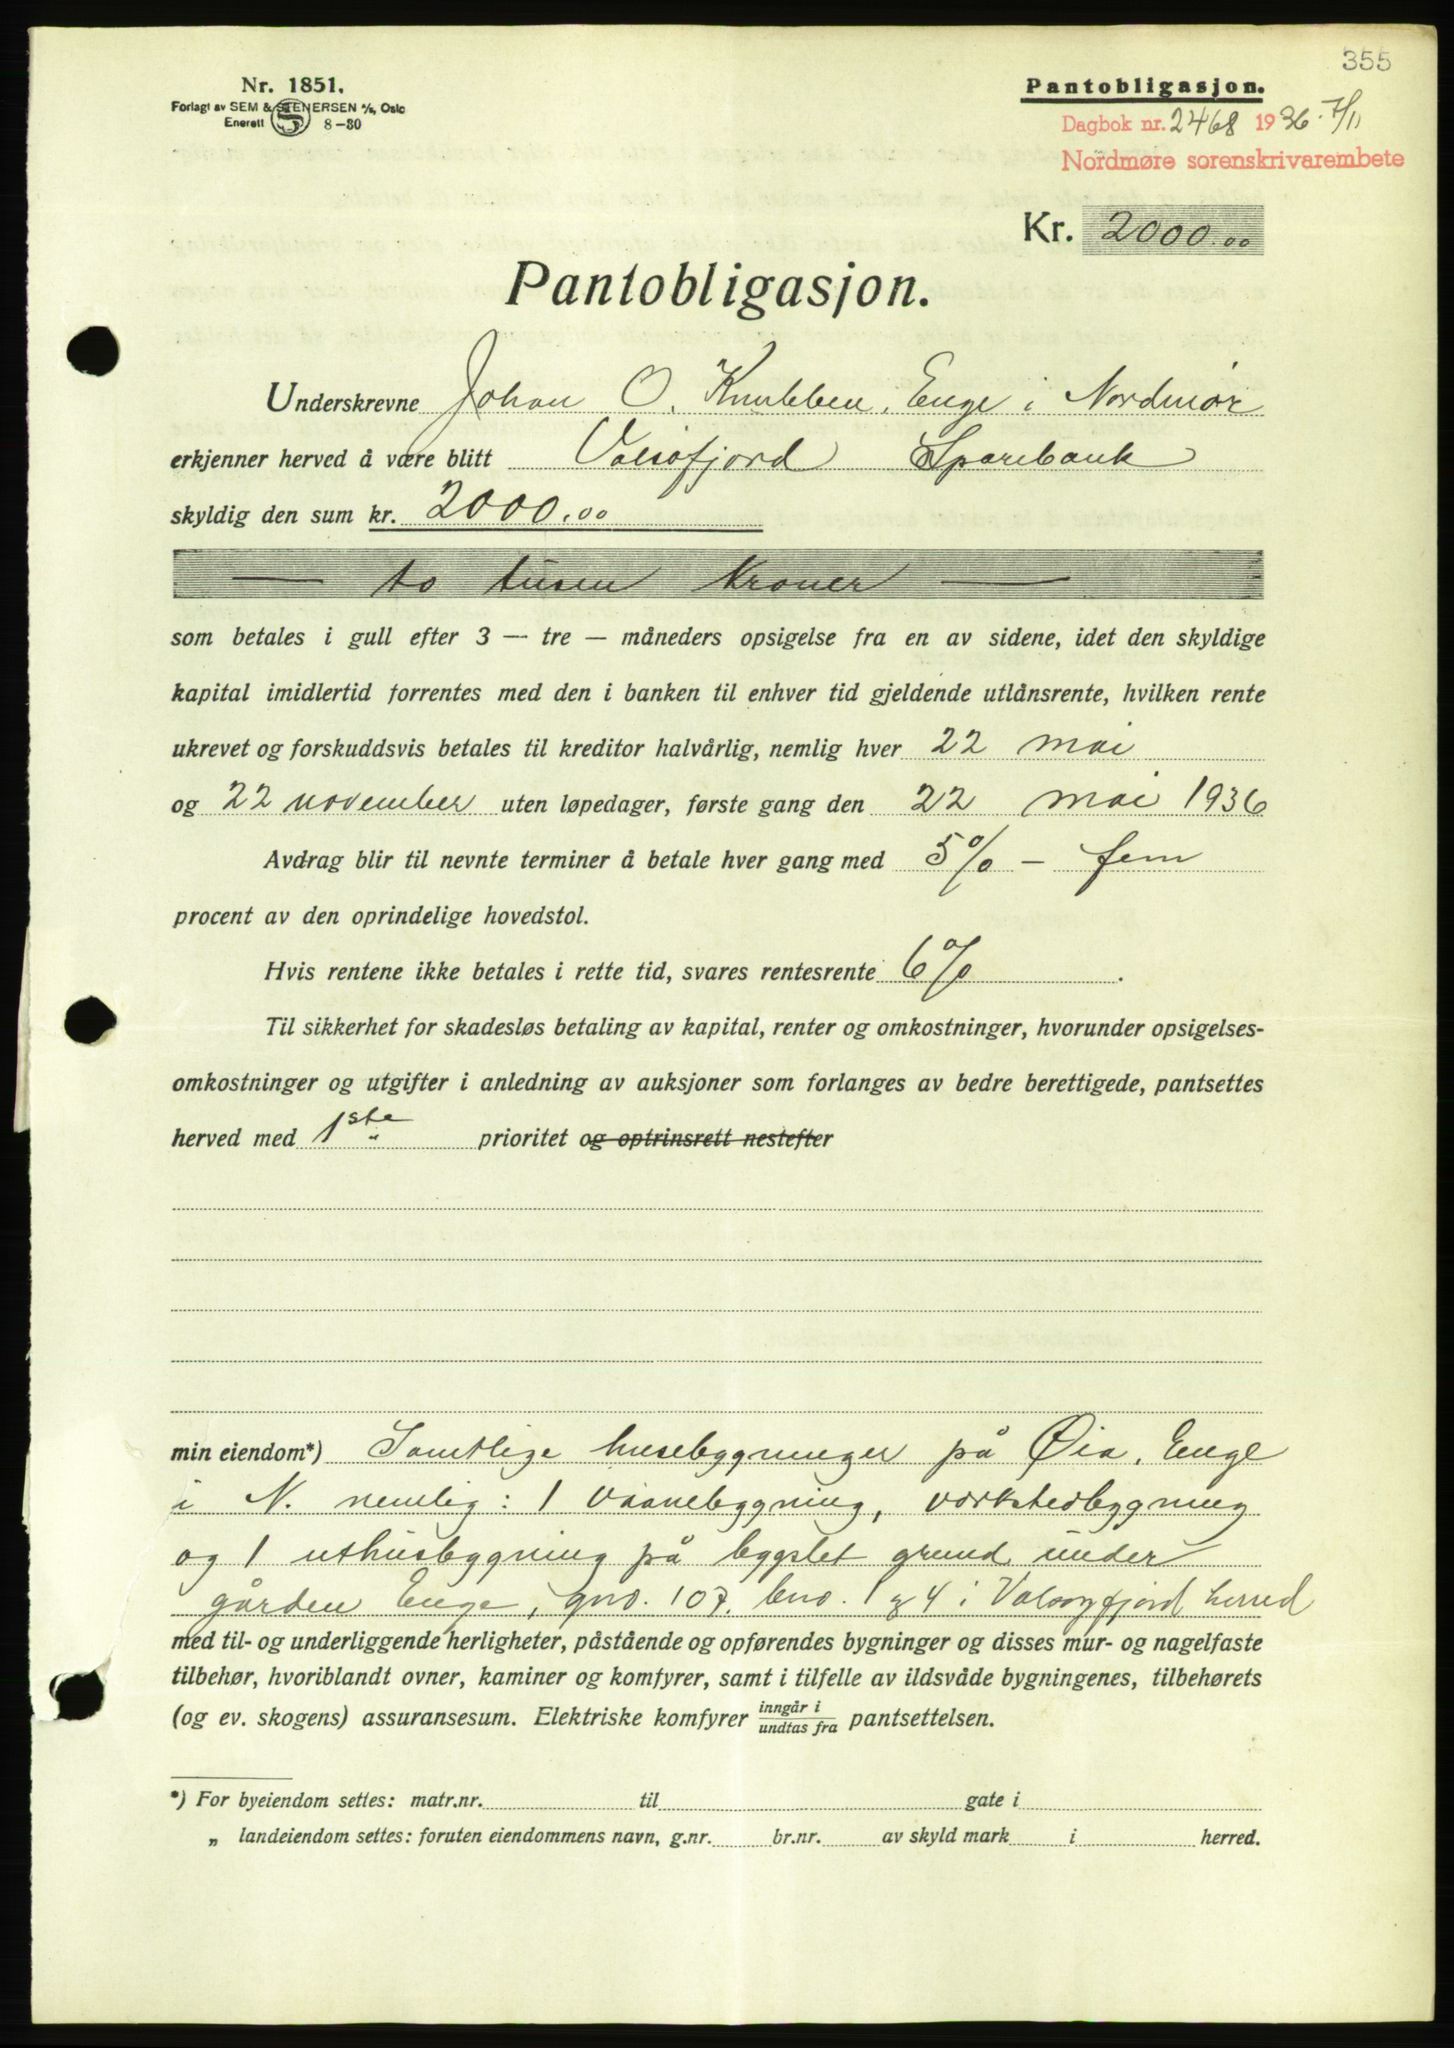 355
Nr. 1851.
Forlagt av SEM & STENERSEN A/S, Oslo
Enerett S 8-30
Pantobligasjon.
Dagbok nr. 2468 1936 - 7/11
Nordmøre sorenskrivarembete
Kr. 2000.00
Pantobligasjon.
Underskrevne Johan O. Knubben, Enge i Nordmør
erkjenner herved å være blitt Valsøfjord Sparebank
skyldig den sum kr. 2000.00
— to tusen Kroner —
som betales i gull efter 3 — tre — måneders opsigelse fra en av sidene, idet den skyldige
kapital imidlertid forrentes med den i banken til enhver tid gjeldende utlånsrente, hvilken rente
ukrevet og forskuddsvis betales til kreditor halvårlig, nemlig hver 22 mai
og 22 november uten løpedager, første gang den 22 mai 1936
Avdrag blir til nevnte terminer å betale hver gang med 5% - fem
procent av den oprindelige hovedstol.
Hvis rentene ikke betales i rette tid, svares rentesrente 6% .
Til sikkerhet for skadesløs betaling av kapital, renter og omkostninger, hvorunder opsigelses-
omkostninger og utgifter i anledning av auksjoner som forlanges av bedre berettigede, pantsettes
herved med 1ste prioritet og optrinsrett nestefter
min eiendom*) Samtlige husebygninger på Øia, Enge
i N. nemlig: 1 vaanebygning, værkstedbygning
og 1 uthusbygning på bygslet grund under
gården Enge, gno. 107. bno. 1 & 4 i Valsøyfjord herred
med til- og underliggende herligheter, påstående og opførendes bygninger og disses mur- og nagelfaste
tilbehør, hvoriblandt ovner, kaminer og komfyrer, samt i tilfelle av ildsvåde bygningenes, tilbehørets
(og ev. skogens) assuransesum. Elektriske komfyrer inngår i / undtas fra pantsettelsen.
*) For byeiendom settes: matr.nr. til gate i
„ landeiendom settes: foruten eiendommens navn, g.nr. br.nr. av skyld mark i herred.